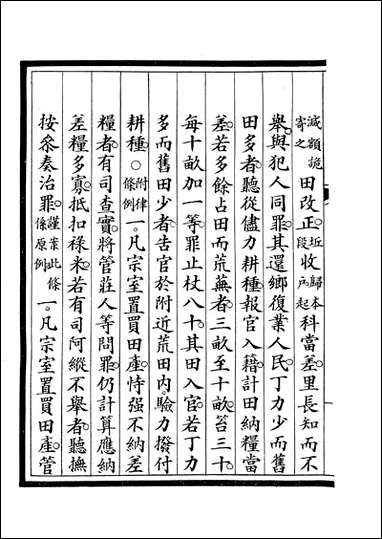 減額詭寄之田改正近段收歸本戶起科當差里長知而不
舉與犯人同罪其還鄉復業人民丁力少而舊
田多者聽從儘力耕種報官入籍計田納糧當
差若多餘占田而荒蕪者三畝至十畝笞三十
每十畝加一等罪止杖八十其田入官若丁力
多而舊田少者告官於附近荒田內驗力撥付
耕種○附律條例一凡宗室置買田產恃强不納差
糧者有司查實將管莊人等問罪仍計算應納
差糧多寡抵扣祿米若有司阿縱不舉者聽撫
按叅奏治罪謹案此條係原例一凡宗室置買田產管